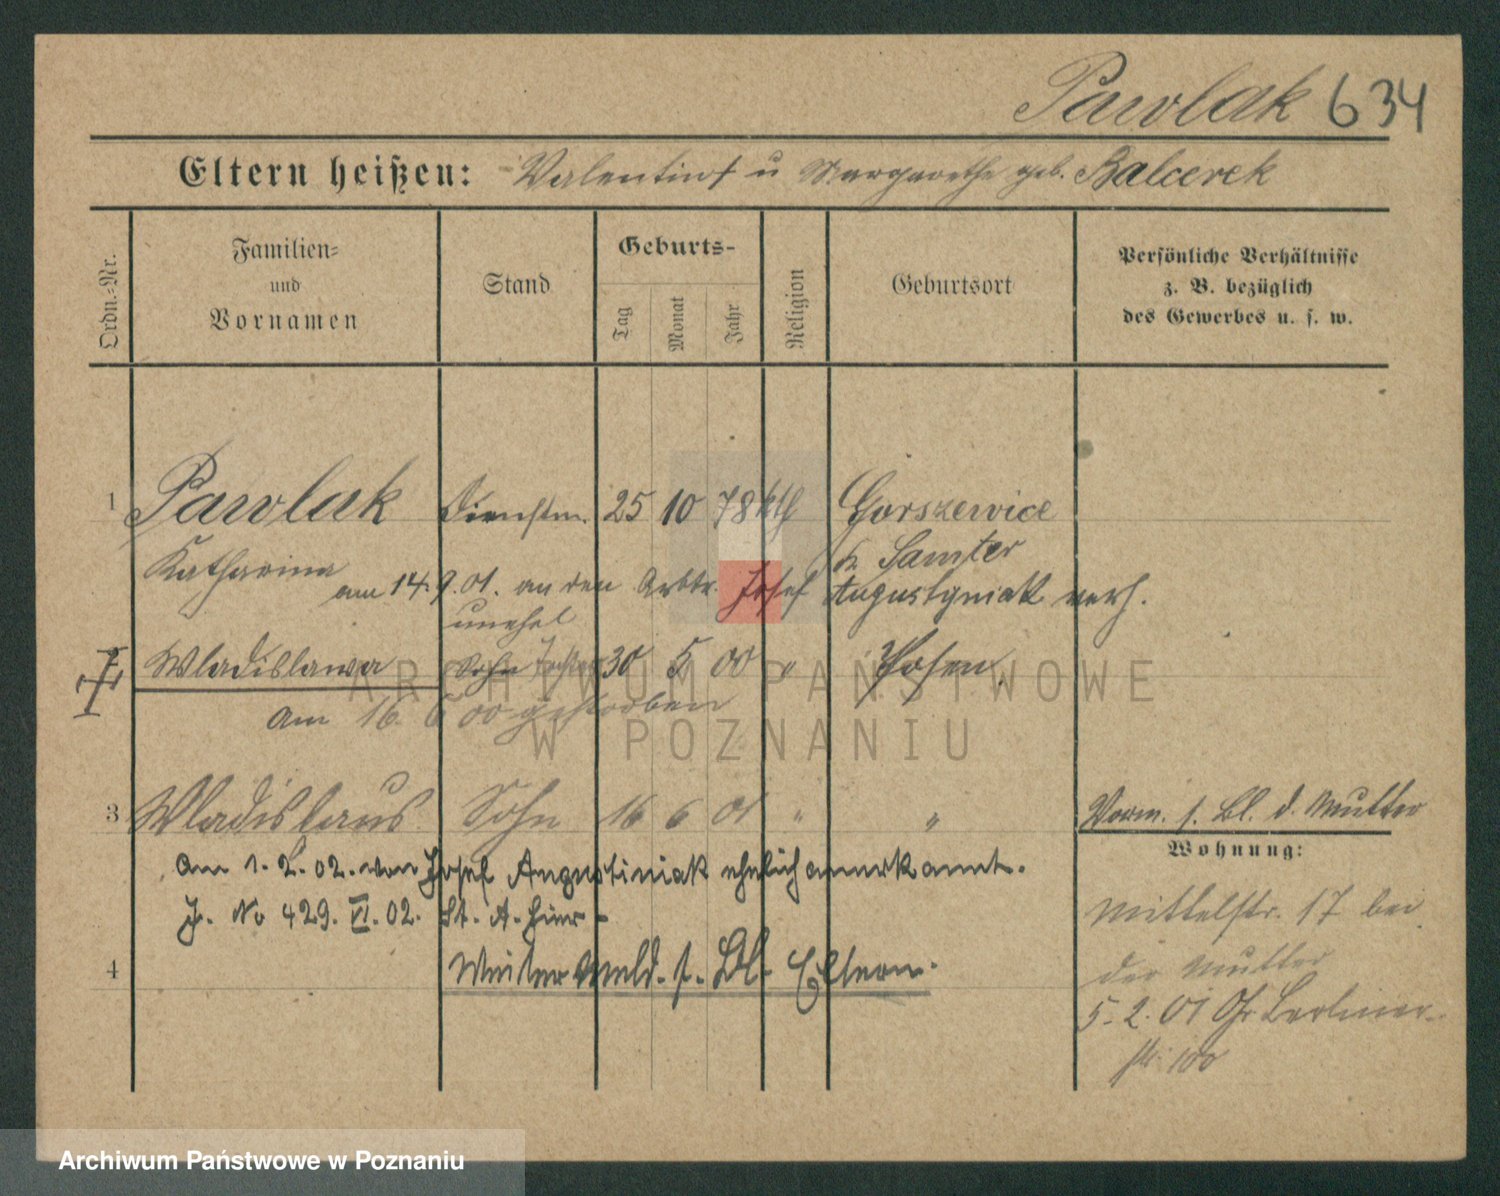 Pawlak 634
Eltern heißen: Valentin u Margarethe geb. Balcerek
Ordn.-Nr.
Familien-
und
Vornamen
Stand
Geburts-
Tag
Monat
Jahr
Religion
Geburtsort
Persönliche Verhältnisse
z. B. bezüglich
des Gewerbes u. s. w.
1 Pawlak Dienstm. 25 10 78 kth Gorszewice
Katharina Kr. Samter
am 14.9.01. an den Arbtr. Josef Augustyniak verh.
unehel
Wladislawa Sohn Tochter 30 5 00 " Posen
am 16 6 00 gestorben
3 Wladislaus Sohn 16 6 01 " "
Vorm. s. Bl. d. Mutter
Wohnung:
am 1. 2. 02. von Josef Augustiniak ehelich anerkannt.
J. No 429. VI. 02. St. A. hier
4 Weitere Meld. s. Bl. Eltern.
Mittelstr. 17 bei
der Mutter
5. 2. 01 Gr Berliner-
str. 100
ARCHIWUM PAŃSTWOWE
W POZNANIU
Archiwum Państwowe w Poznaniu